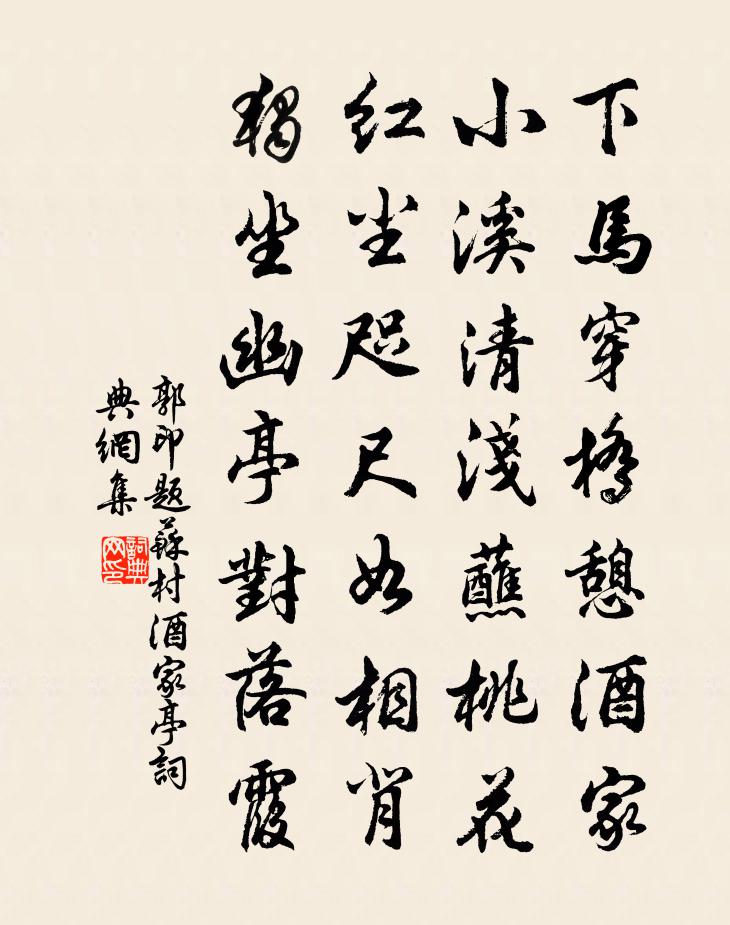 下馬穿橋憩酒家
小溪清淺蘸桃花
紅塵咫尺如相背
獨坐幽亭對落霞
郭印題蘇村酒家亭詞
典網集
詞典
网印